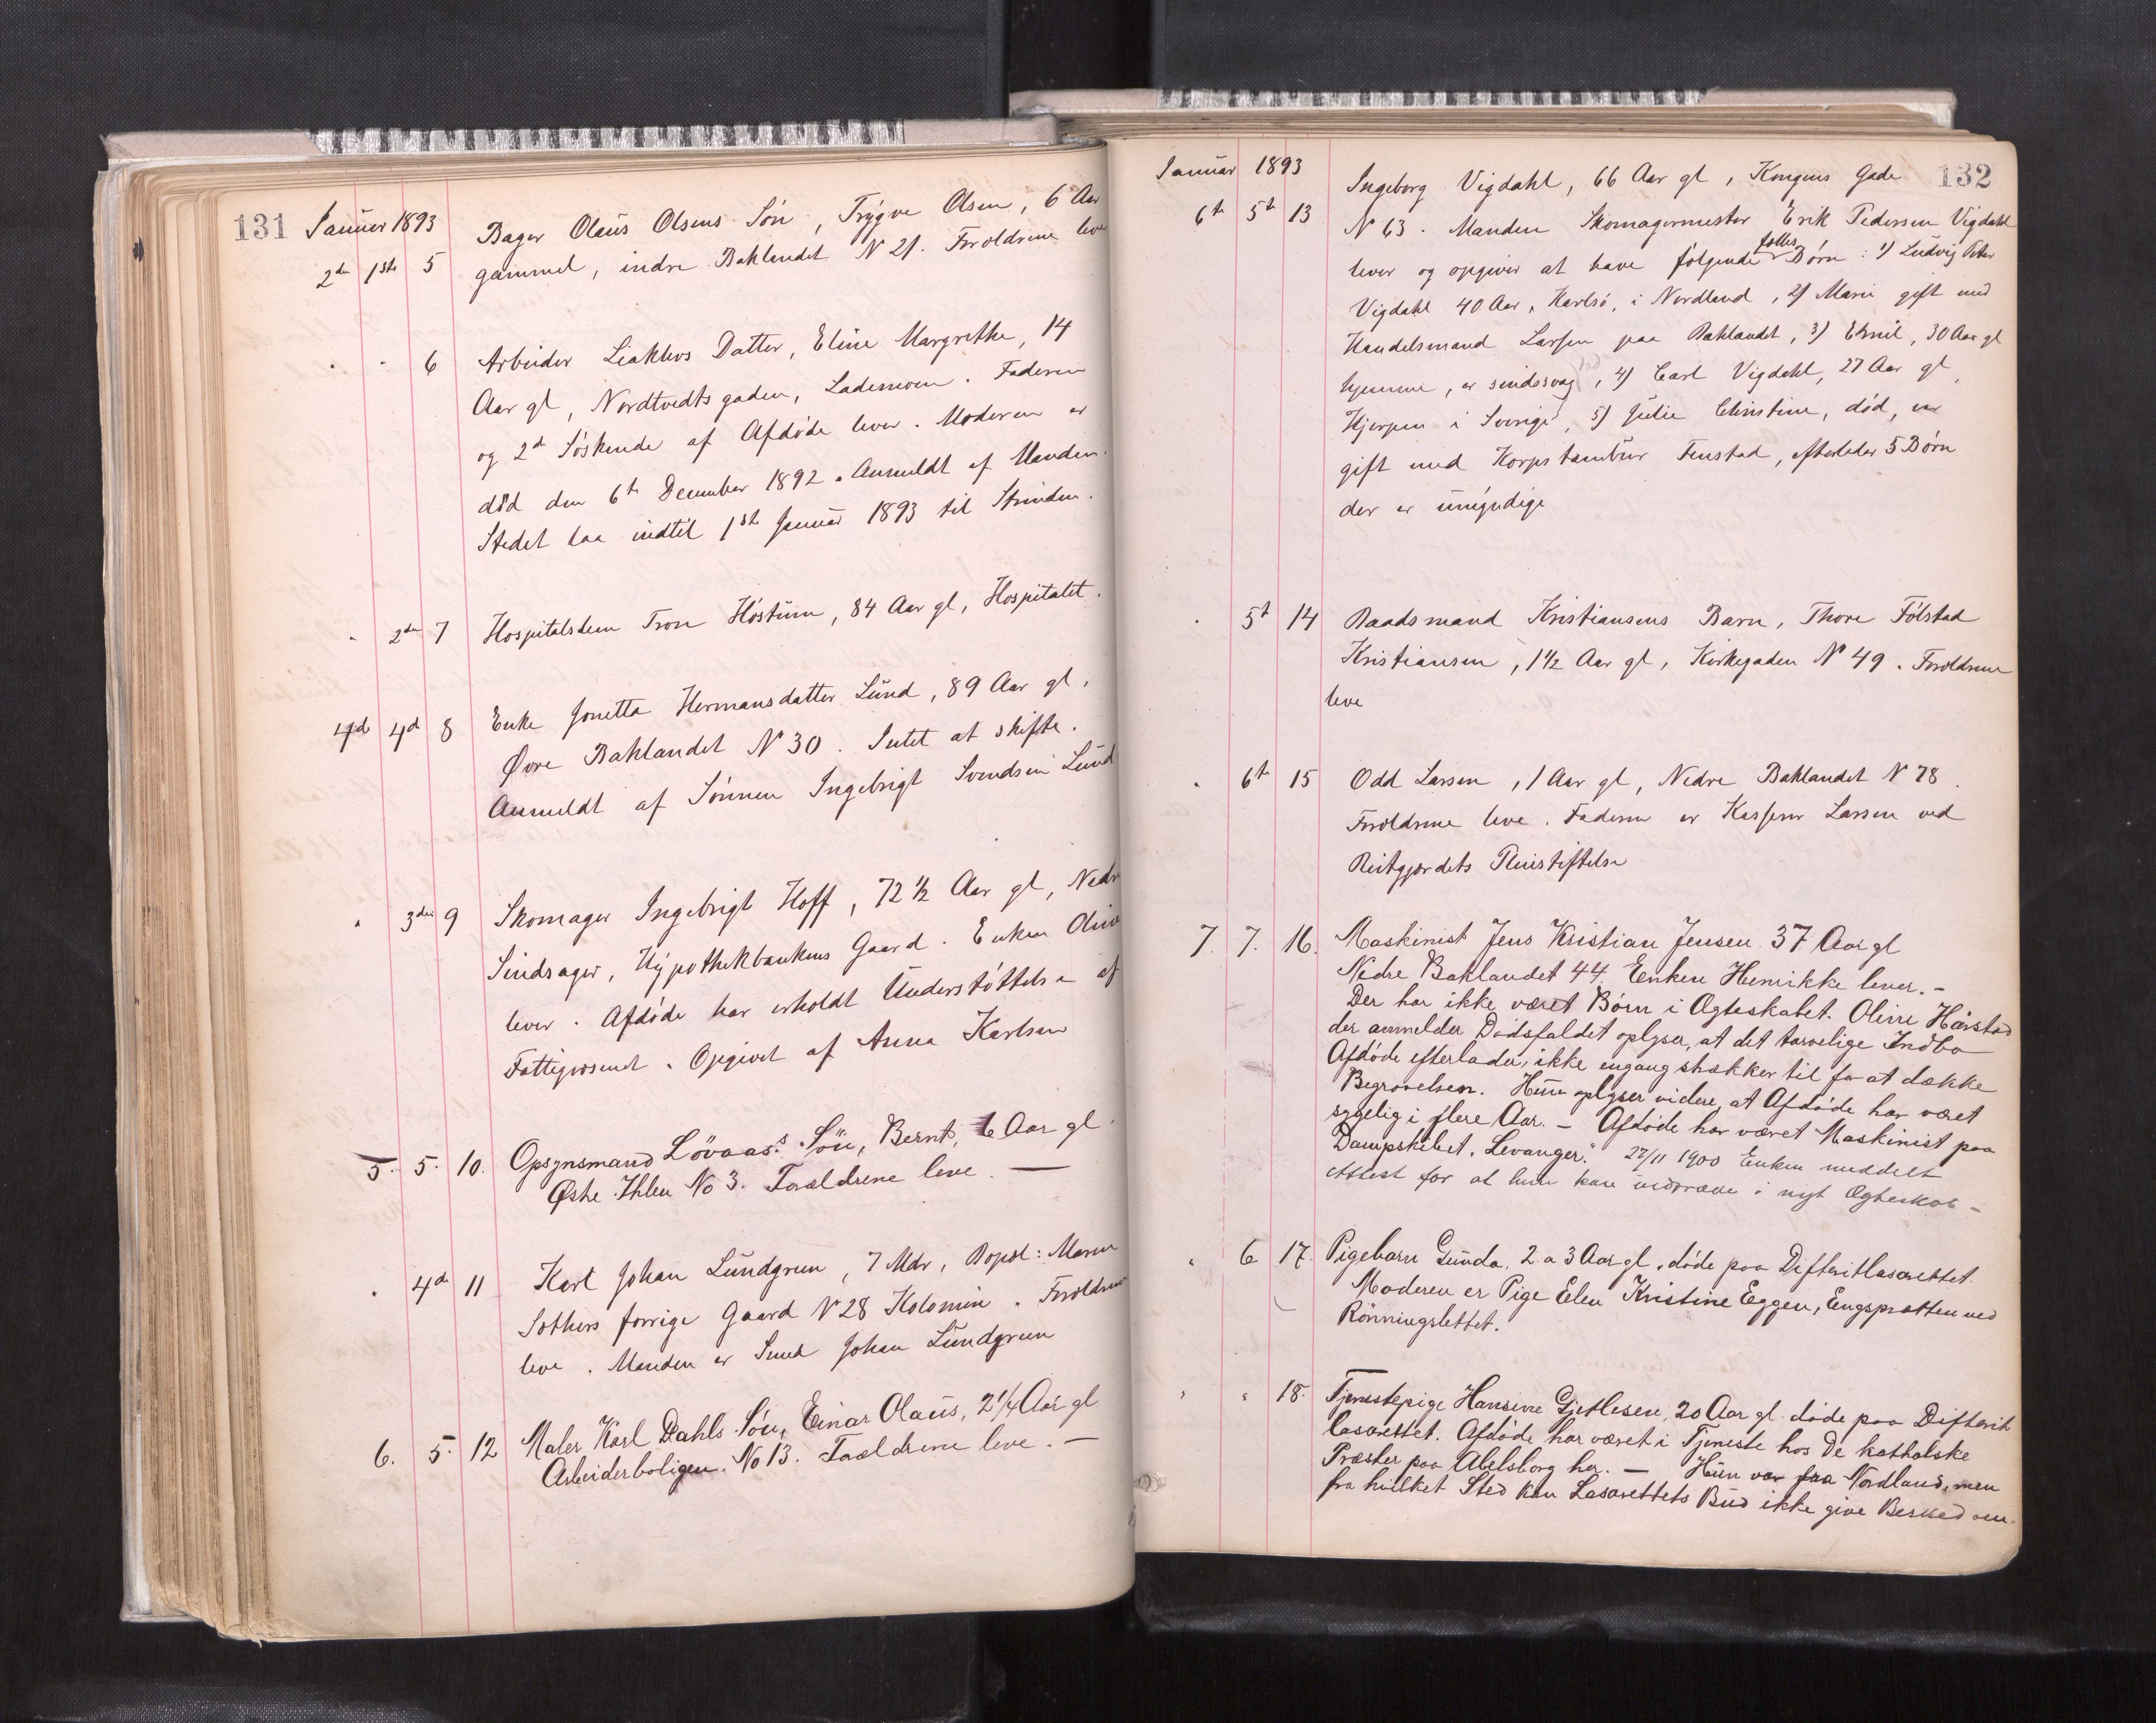 131 Januar 1893
Bager Olaus Olsens Søn, Trygve Olsen, 6 Aar
2den 1ste 5 gammel, indre Baklandet N 21. Foroldrene leve
" " 6 Arbeider Liaklevs Datter, Eline Margrethe, 14
Aar gl, Nordtvedts gaden, Lademoen. Faderen
og 2de Söskende af Afdöde lever. Moderen er
död den 6te December 1892. Anmeldt af Manden.
Stedet laa indtil 1ste Januar 1893 til Strinden.
" 2den 7 Hospitalslem Tron Höstum, 84 Aar gl, Hospitalet.
4de 4de 8 Enke Jonetta Hermansdatter Lund, 89 Aar gl,
Øvre Baklandet N 30. Intet at skifte.
Anmeldt af Sönnen Ingebrigt Svendsen Lund
" 3die 9 Skomager Ingebrigt Hoff, 72 1/2 Aar gl, Nedre
Sindsager, Hypothekbankens Gaard. Enken Oline
lever. Afdöde har erholdt Understöttelse af
Fattigvæsenet. Opgivet af Anna Karlsen
5. 5. 10. Opsynsmand Lövaas's Sön, Bernt, 6 Aar gl.
Østre Ihlen No 3. Forældrene leve. —
" 4de 11 Karl Johan Lundgreen, 7 Mdr, Bopæl: Maren
Sothers forrige Gaard N 28 Kolomien. Foroldrene
leve. Manden er Smed Johan Lundgreen
6. 5. 12 Maler Karl Dahls Sön, Einar Olaus, 2 1/4 Aar gl
Arbeiderboligen. No 13. Forældrene leve. —
Januar 1893 132
Ingeborg Vigdahl, 66 Aar gl, Kongens Gade
6te 5te 13 N 63. Manden Skomagermester Erik Pedersen Vigdahl
lever og opgiver at have følgende fælles Børn: 1) Ludvig Peter
Vigdahl 40 Aar, Karlsö, i Nordland, 2) Marie gift med
Handelsmand Larsen paa Baklandet, 3) Emil, 30 Aar gl
hjemme, er sindssvag, 4) Carl Vigdahl, 27 Aar gl,
Hjerpen i Sverige, 5) Julie Christine, död, var
gift med Korpstambur Finstad, efterlader 5 Børn
der er umyndige
" 5te 14 Raadsmand Kristiansens Barn, Thore Fölstad
Kristiansen, 1 1/2 Aar gl, Kirkegaden N 49. Foroldrene
leve
" 6te 15 Odd Larsen, 1 Aar gl, Nedre Baklandet N 78.
Foroldrene leve. Faderen er Kasserer Larsen ved
Reitgjærdets Pleiestiftelse
7. 7. 16. Maskinist Jens Kristian Jensen 37 Aar gl
Nedre Baklandet 44. Enken Henrikke lever. –
Der har ikke været Börn i Ægteskabet. Oline Hårstad
der anmelder Dödsfaldet oplyser, at det tarvelige Indbo
Afdöde efterlader, ikke engang strækker til for at dække
Begravelsen. Hun oplyser videre, at Afdöde har været
sygelig i flere Aar. – Afdöde har været Maskinist paa
Dampskibet "Levanger." 27/11 1900 Enken meddelt
Attest for at hun kan indtræde i nyt Ægteskab –
" 6 17. Pigebarn Gunda, 2 a 3 Aar gl. döde paa Difteritlasarettet.
Moderen er Pige Elen Kristine Eggen, Engsprætten ved
Rönningslettet.
" " 18. Tjenestepige Hansine Gjetlesen, 20 Aar gl. döde paa Difterit
lasarettet. Afdöde har været i Tjeneste hos De katholske
Præster paa Abelsborg her. — Hun var fra Nordland, men
fra hvilket Sted kan Lasarettets Bud ikke give Besked om.